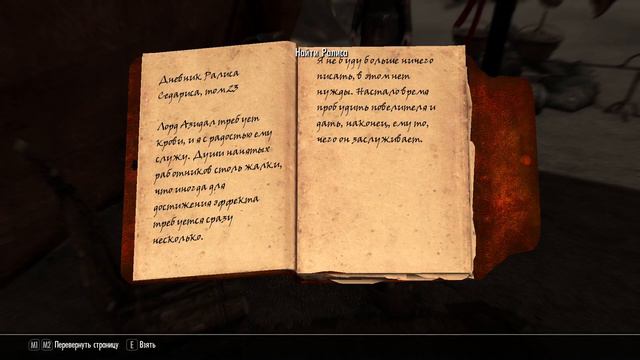 Найти Ралиса
Дневник Ралиса
Седариса, том 23
Лорд Азидал требует
крови, и я с радостью ему
служу. Души нанятых
работников столь жалки,
что иногда для
достижения эффекта
требуется сразу
несколько.
Я не буду больше ничего
писать, в этом нет
нужды. Настало время
пробудить повелителя и
дать, наконец, ему то,
чего он заслуживает.
M1 M2 Перевернуть страницу E Взять